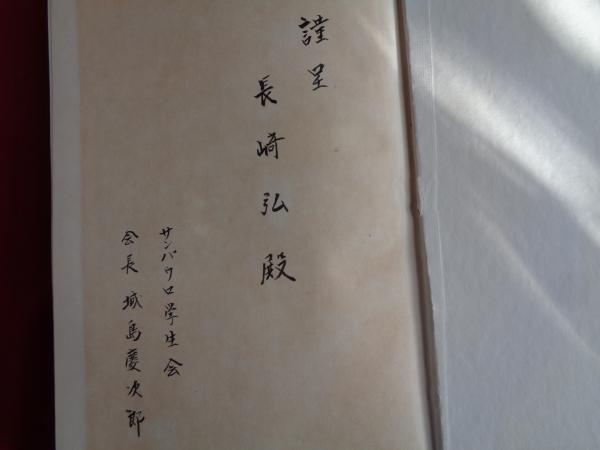 謹呈
長崎弘殿
サンパウロ学生会
会長 城島慶次郎